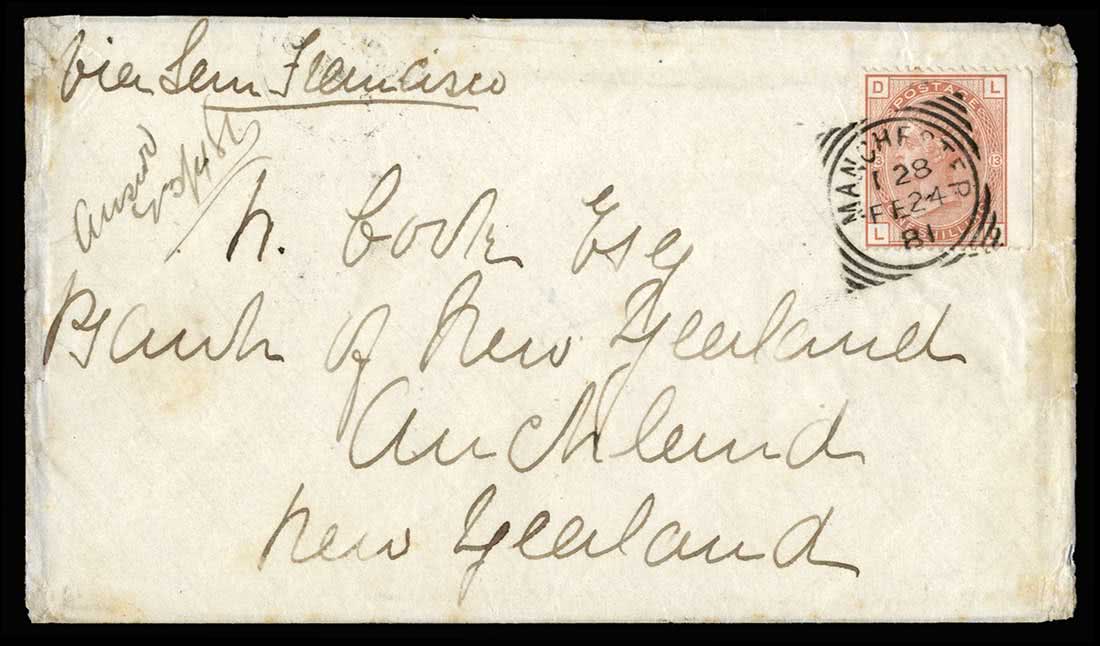 Via San Francisco
D L
POSTAGE
13
L
MANCHESTER
1 28
FE 24
81
N. Cook Esq
Bank of New Zealand
Auckland
New Zealand